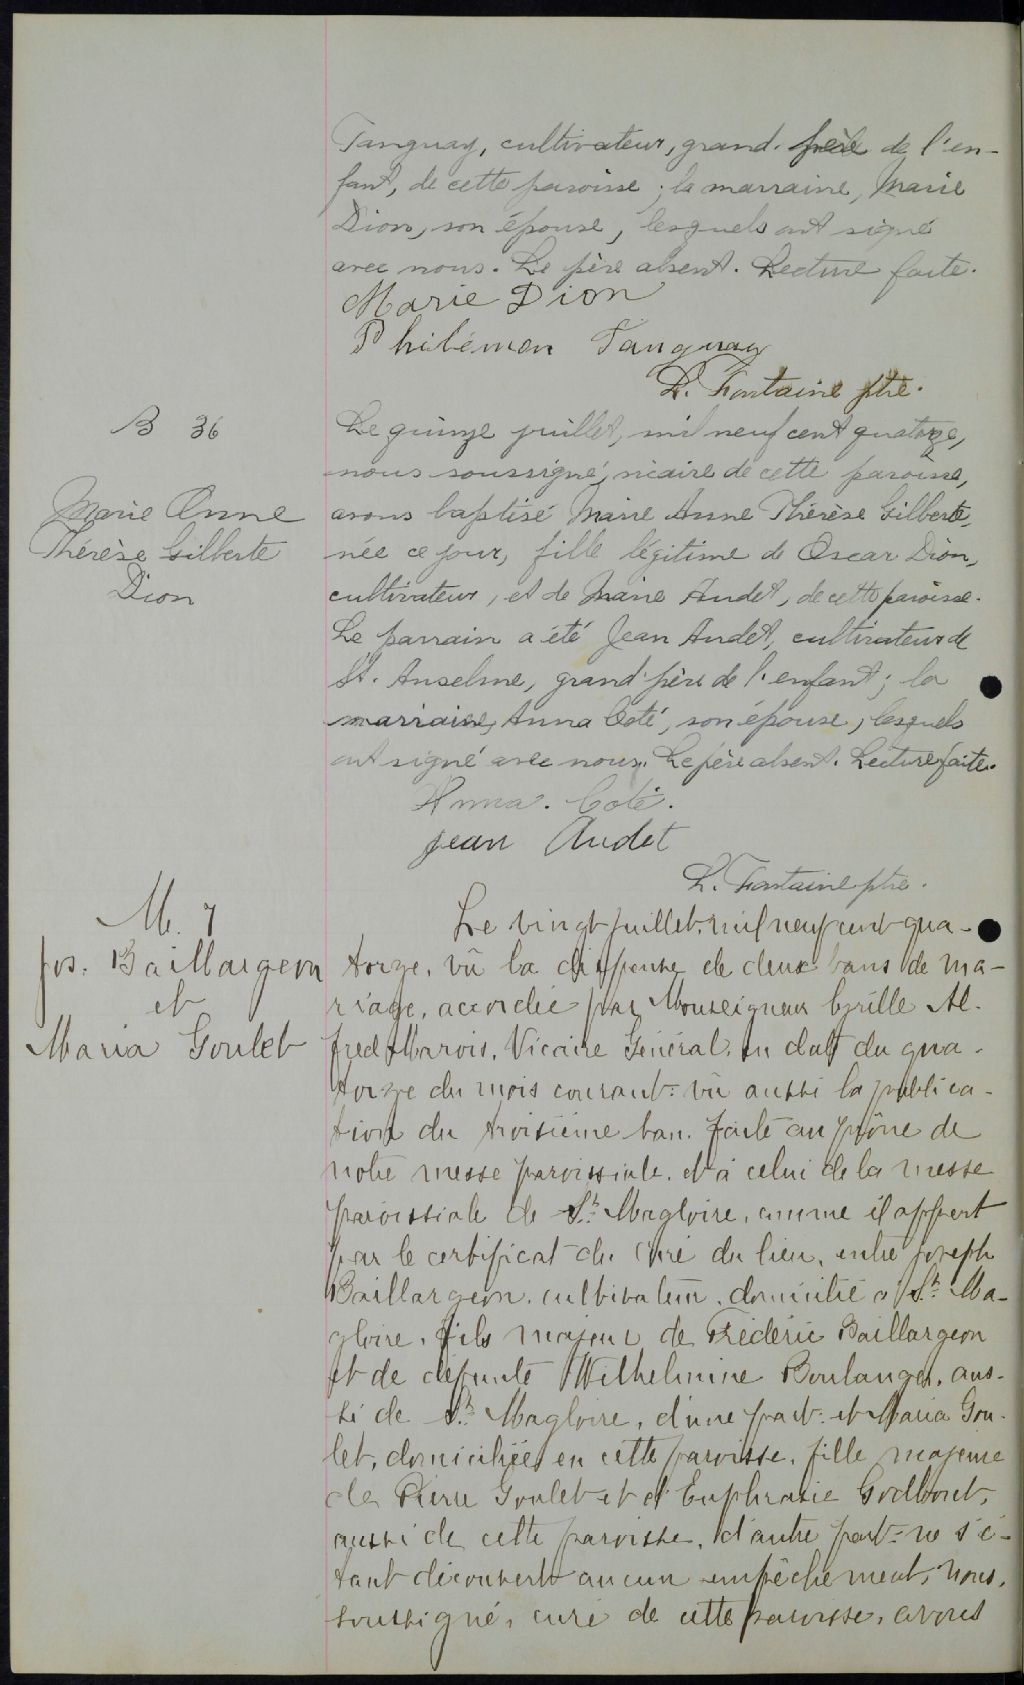 Tanguay, cultivateur, grand-père de l'en-
fant, de cette paroisse; la marraine, Marie
Dion, son épouse, lesquels ont signé
avec nous. Le père absent. Lecture faite.
Marie Dion
Philémon Tanguay
L. Fontaine ptre.
B 36
Marie Anne
Thérèse Gilberte
Dion
Le quinze juillet, mil neuf cent quatorze,
nous soussigné, vicaire de cette paroisse,
avons baptisé Marie Anne Thérèse Gilberte,
née ce jour, fille légitime de Oscar Dion,
cultivateur, et de Marie Audet, de cette paroisse.
Le parrain a été Jean Audet, cultivateur de
St. Anselme, grand'père de l'enfant; la
marraine, Anna Coté, son épouse, lesquels
ont signé avec nous. Le père absent. Lecture faite.
Anna. Coté.
Jean Audet
L. Fontaine ptre.
M. 7
Jos. Baillargeon
et
Maria Goulet
Le vingt juillet, mil neuf cent qua-
torze, vû la dispense de deux bans de ma-
riage, accordée par Monseigneur Cyrille Al-
fred Marois, Vicaire Général, en date du qua-
torze du mois courant: vû aussi la publica-
tion du troisième ban, faite au prône de
notre messe paroissiale, et à celui de la messe
paroissiale de St. Magloire, comme il appert
par le certificat du Curé du lieu, entre Joseph
Baillargeon, cultivateur, domicilié à St. Ma-
gloire, fils majeur de Frédéric Baillargeon
et de défunte Wilhelmine Boulanger, aus-
si de St. Magloire, d'une part: et Maria Gou-
let, domiciliée en cette paroisse, fille majeure
de Pierre Goulet et d'Euphrasie Godbout,
aussi de cette paroisse, d'autre part: ne s'é-
tant découvert aucun empêchement, nous,
soussigné, curé de cette paroisse, avons